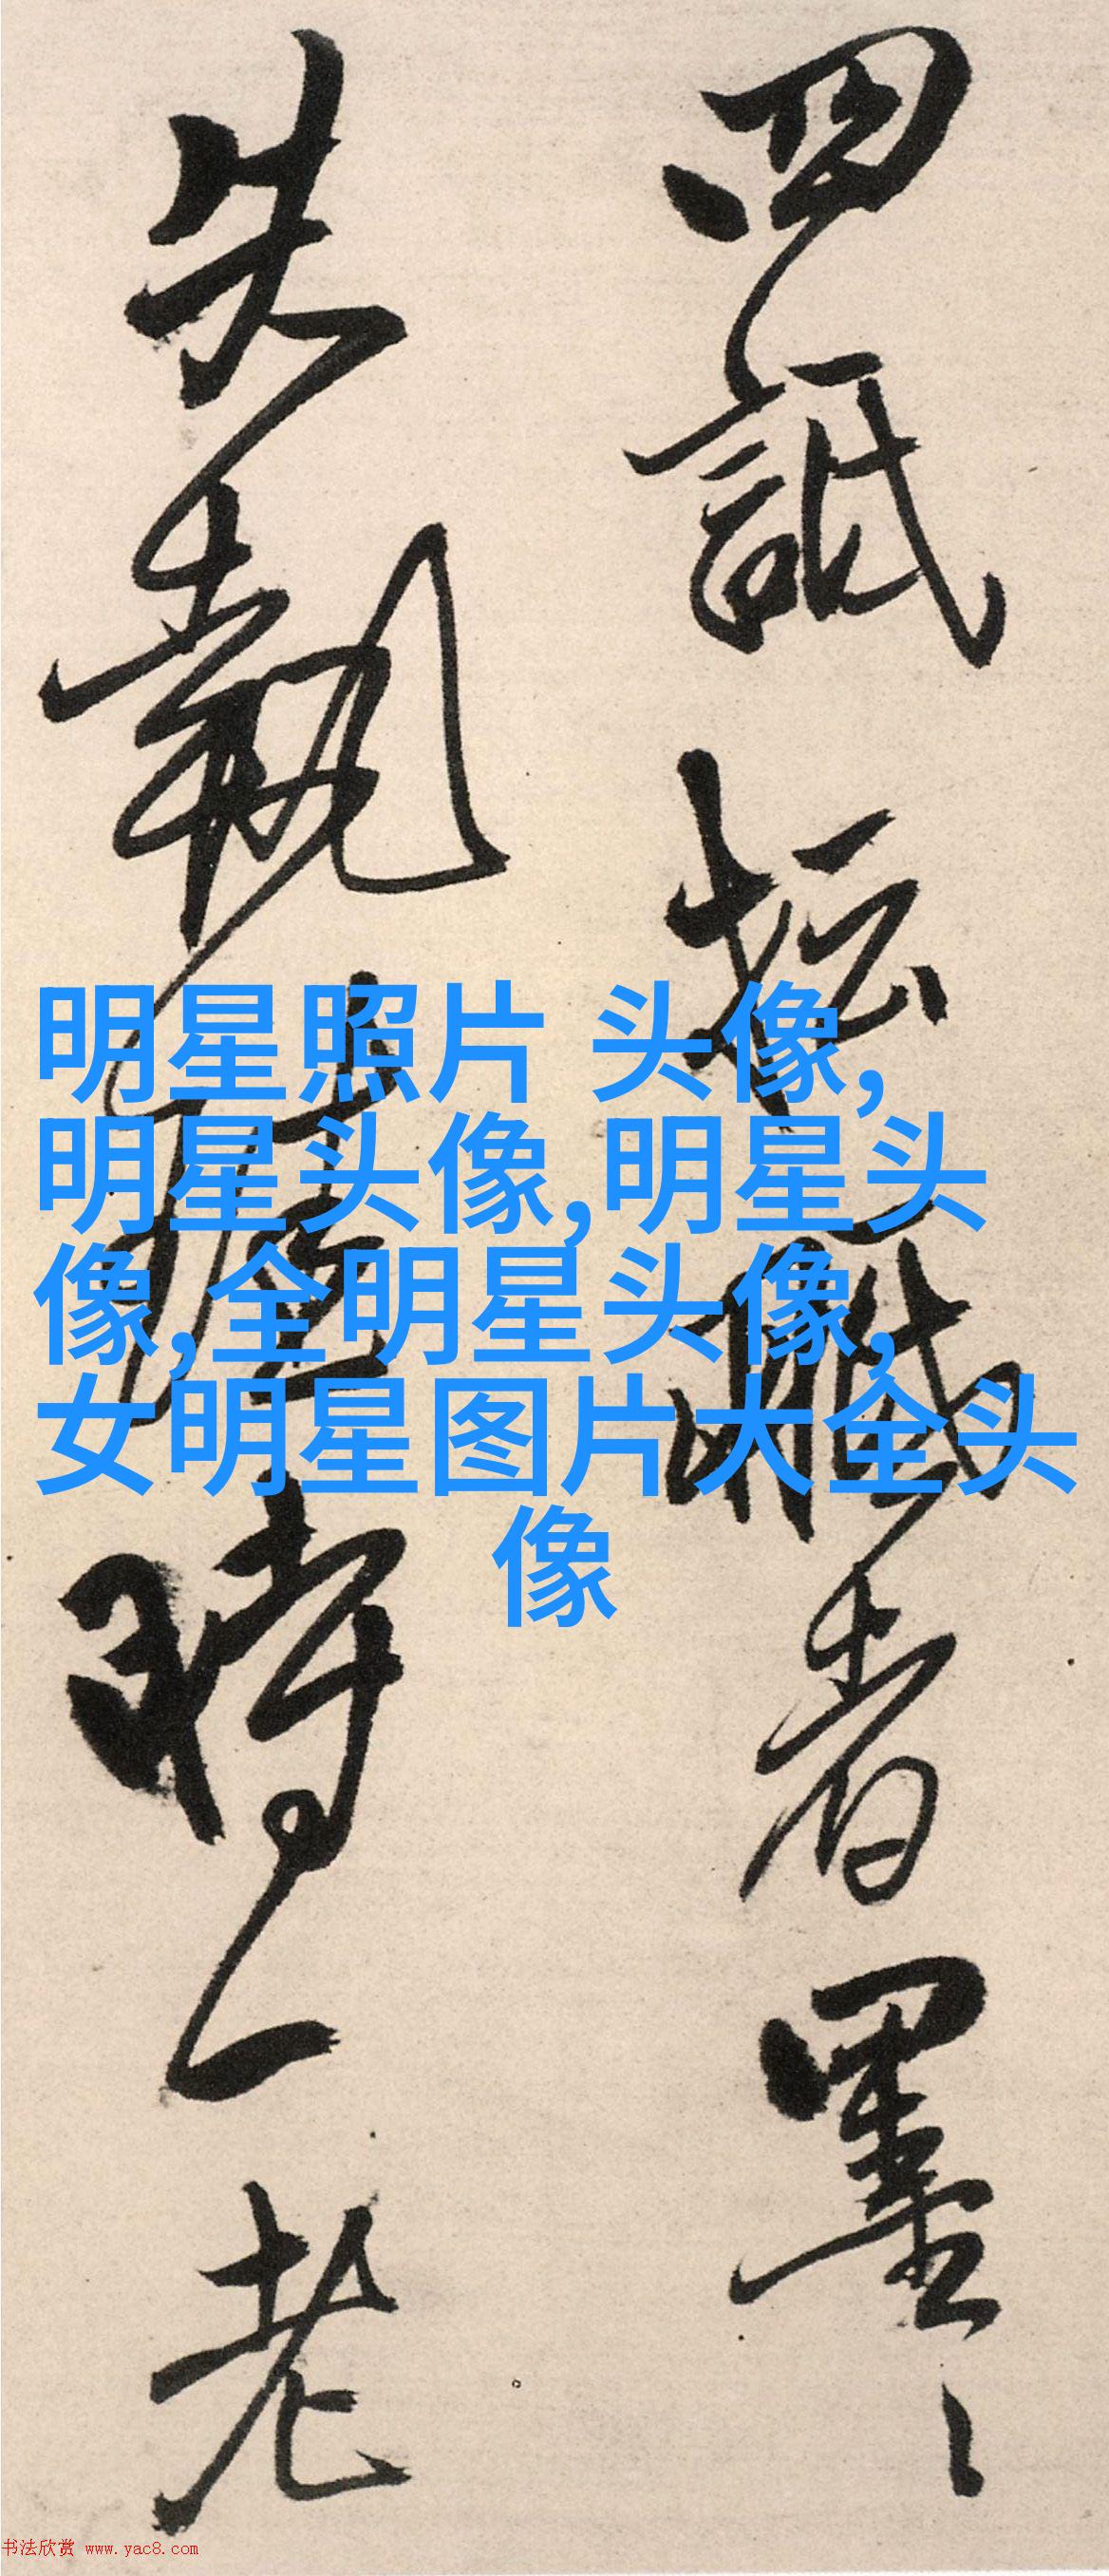 四詆坛職者墨
失執時老
明星照片 头像,
明星头像,明星头
像,全明星头像,
女明星图片大全头
像
书法欣赏 www.yac8.com